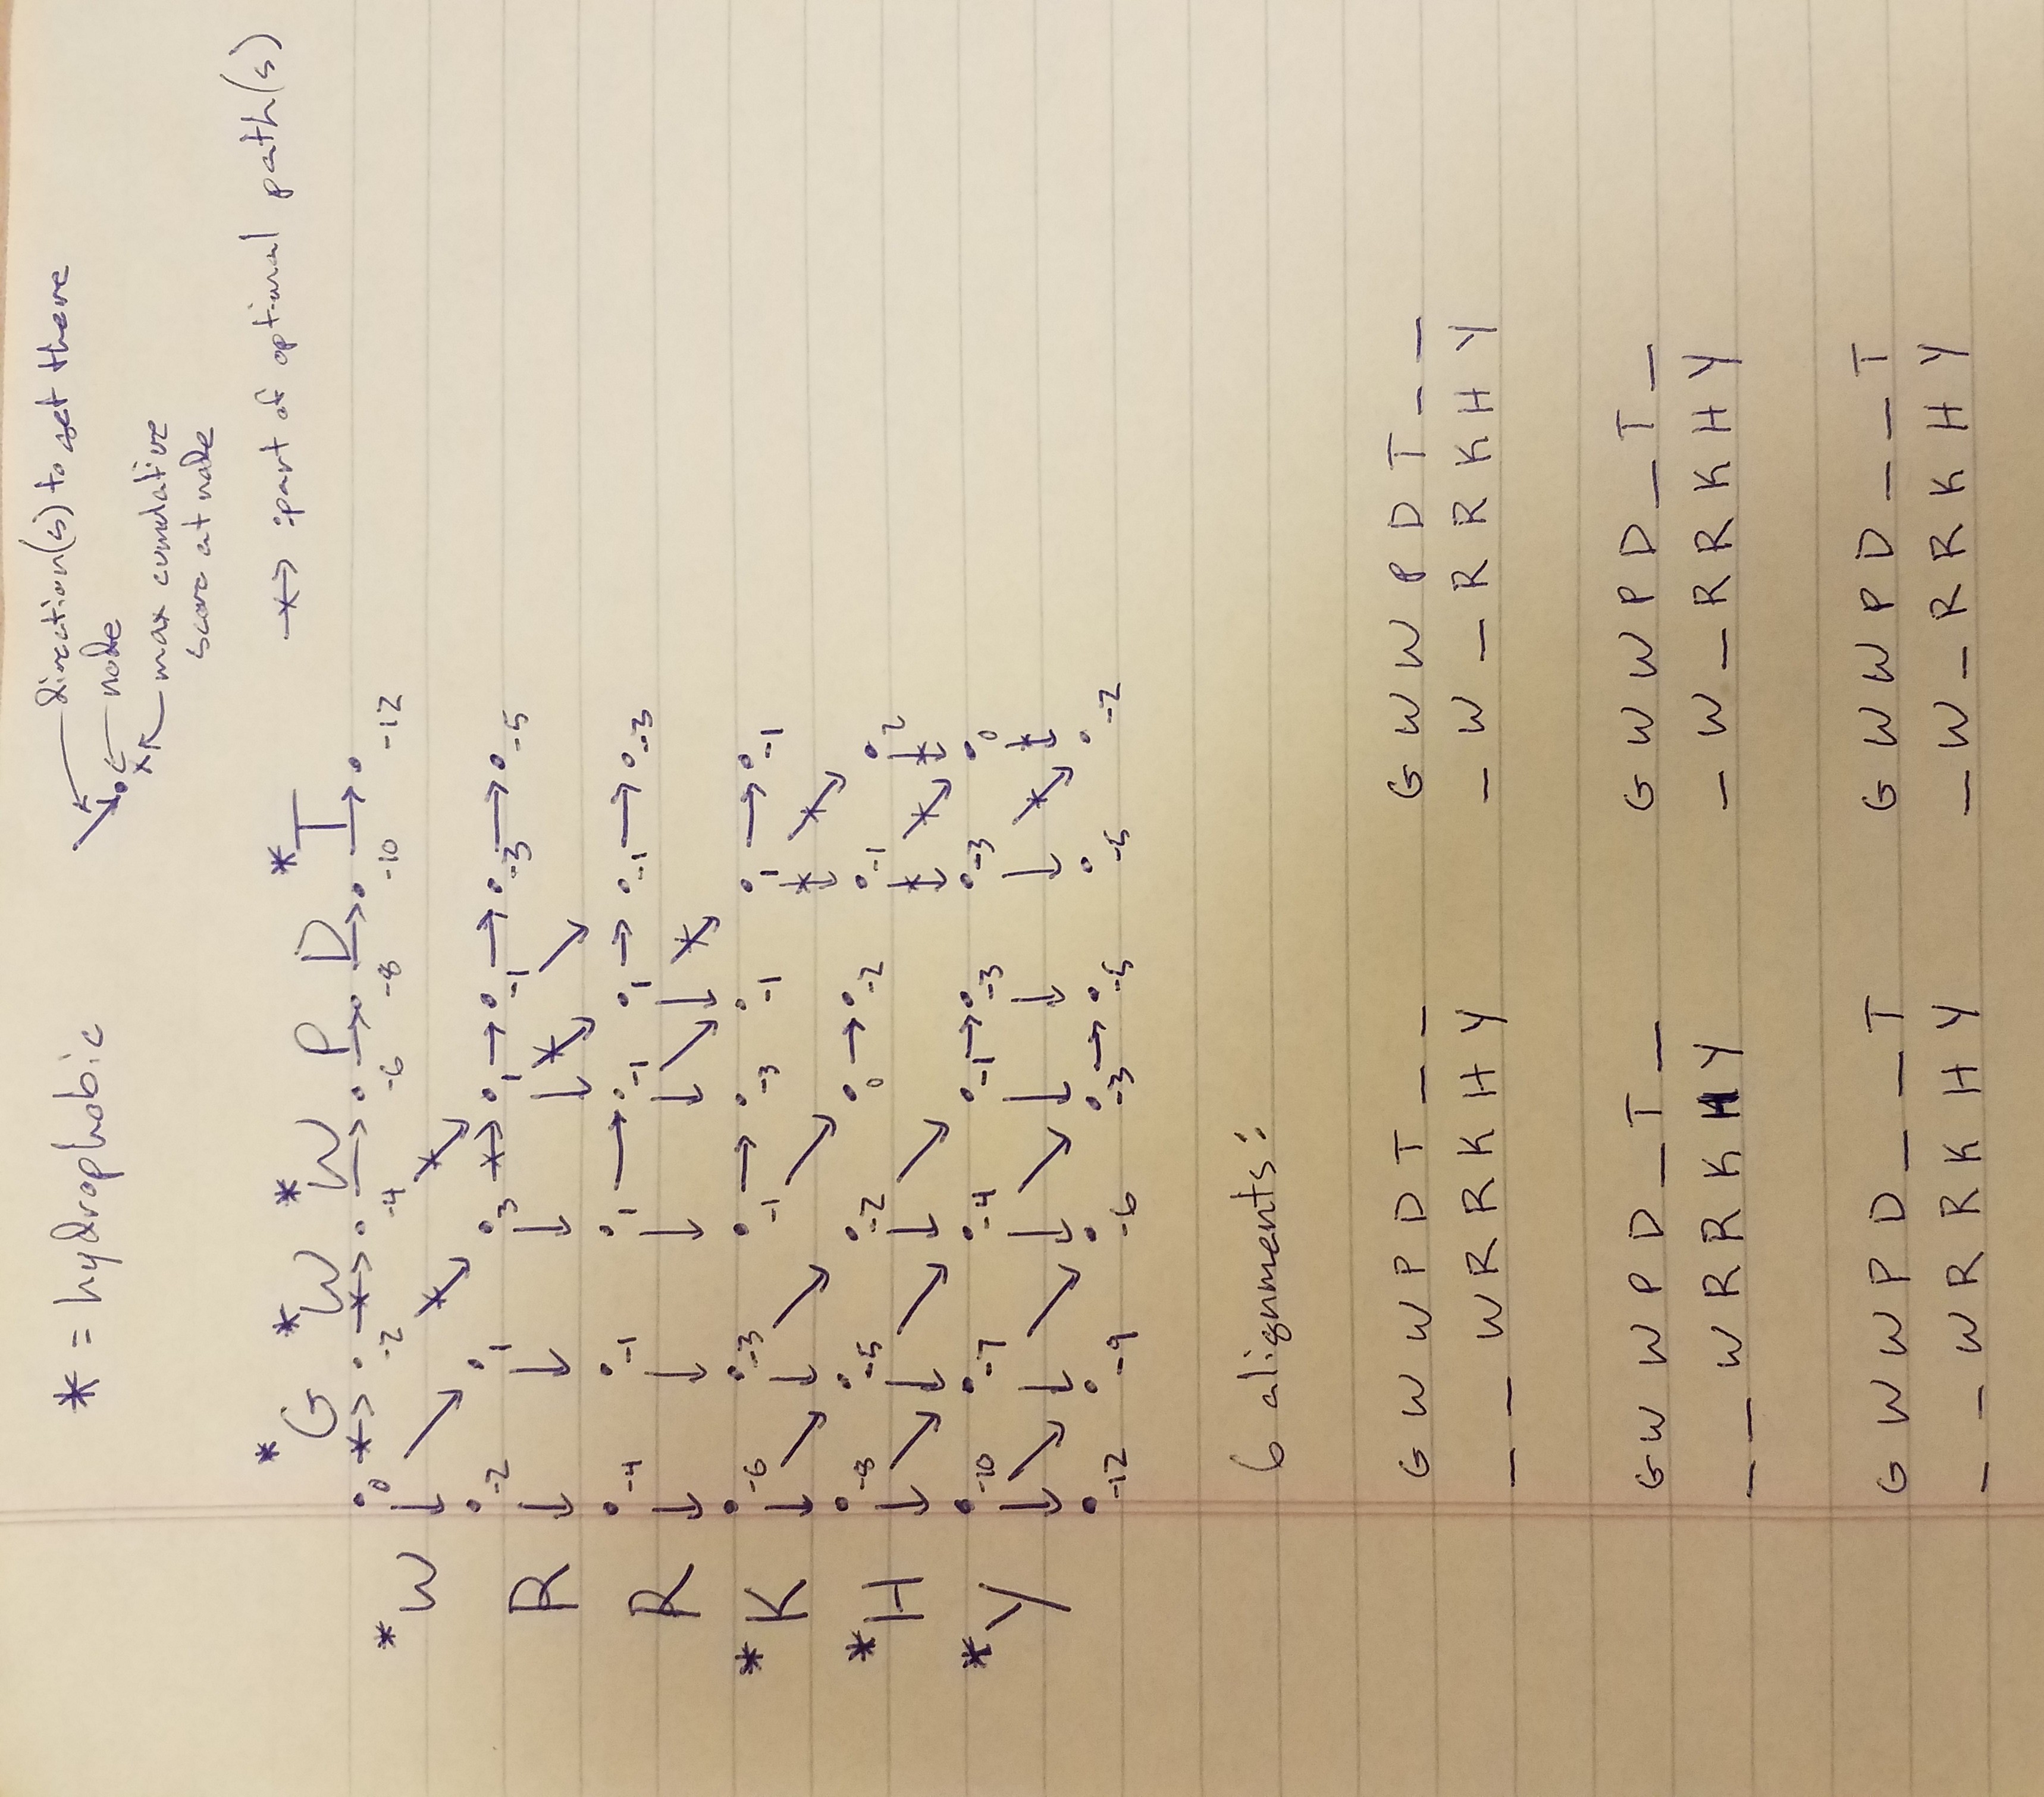 * = hydrophobic
direction(s) to get there
node
x
max cumulative
score at node
→ : part of optimal path(s)
*G *W *W P D *T
0 -2 -4 -6 -8 -10 -12
*W
-2 1 3 1 -1 -3 -5
R
-4 -1 1 -1 1 -1 -3
R
-6 -3 -1 -3 -1 1 -1
*K
-8 -5 -2 0 -2 -1 2
*H
-10 -7 -4 -1 -3 -3 0
*Y
-12 -9 -6 -3 -5 -5 -2
6 alignments:
G W W P D T _ _
_ _ W R R K H Y
G W W P D T _ _
_ W _ R R K H Y
G W W P D _ T _
_ _ W R R K H Y
G W W P D _ T _
_ W _ R R K H Y
G W W P D _ _ T
_ _ W R R K H Y
G W W P D _ _ T
_ W _ R R K H Y